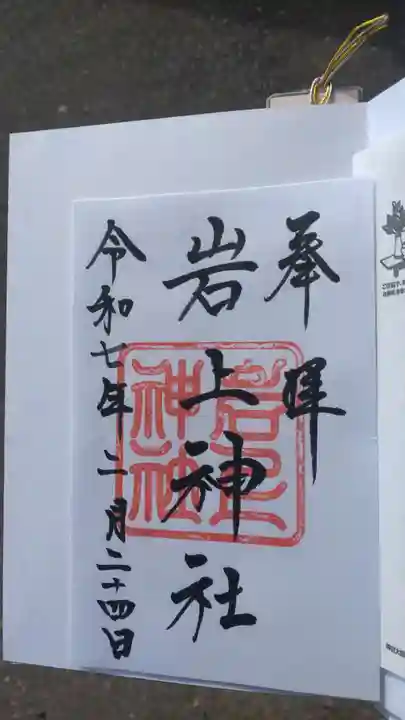 奉拝
岩上神社
令和七年二月二十四日
岩上
神社